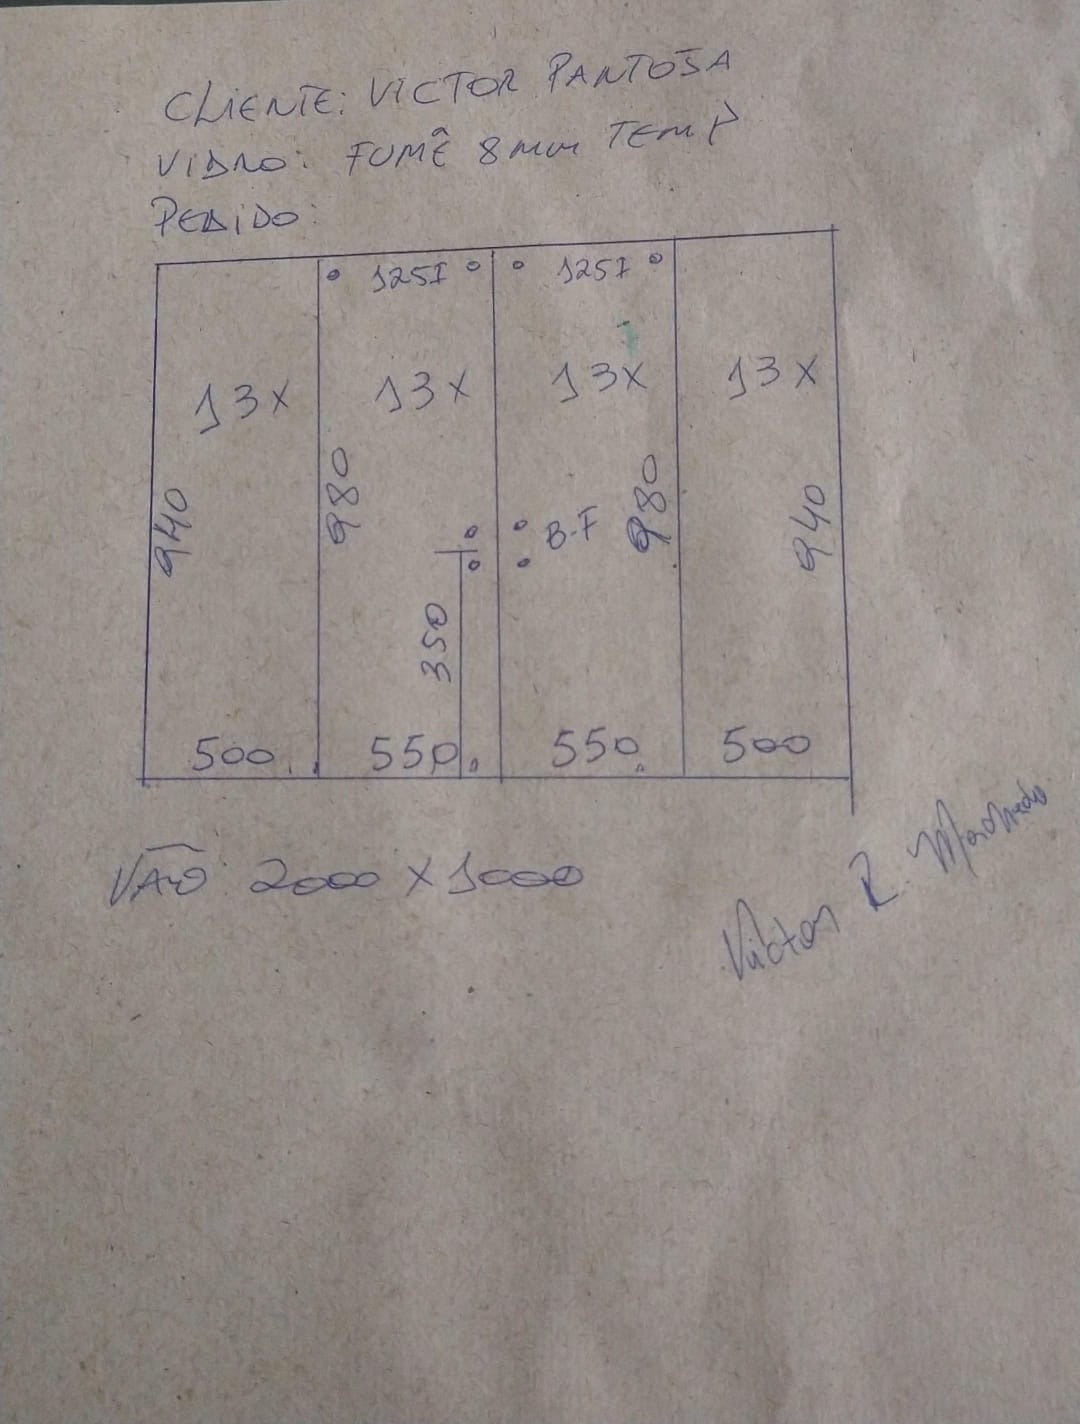 CLIENTE: VICTOR PANTOJA
VIDRO: FUMÊ 8mm TEMP
PEDIDO:
125I 125I
13X 13X 13X 13X
940 980 980 940
B-F
350
500 550 550 500
VÃO: 2000 X 1000
Victor R. Machado